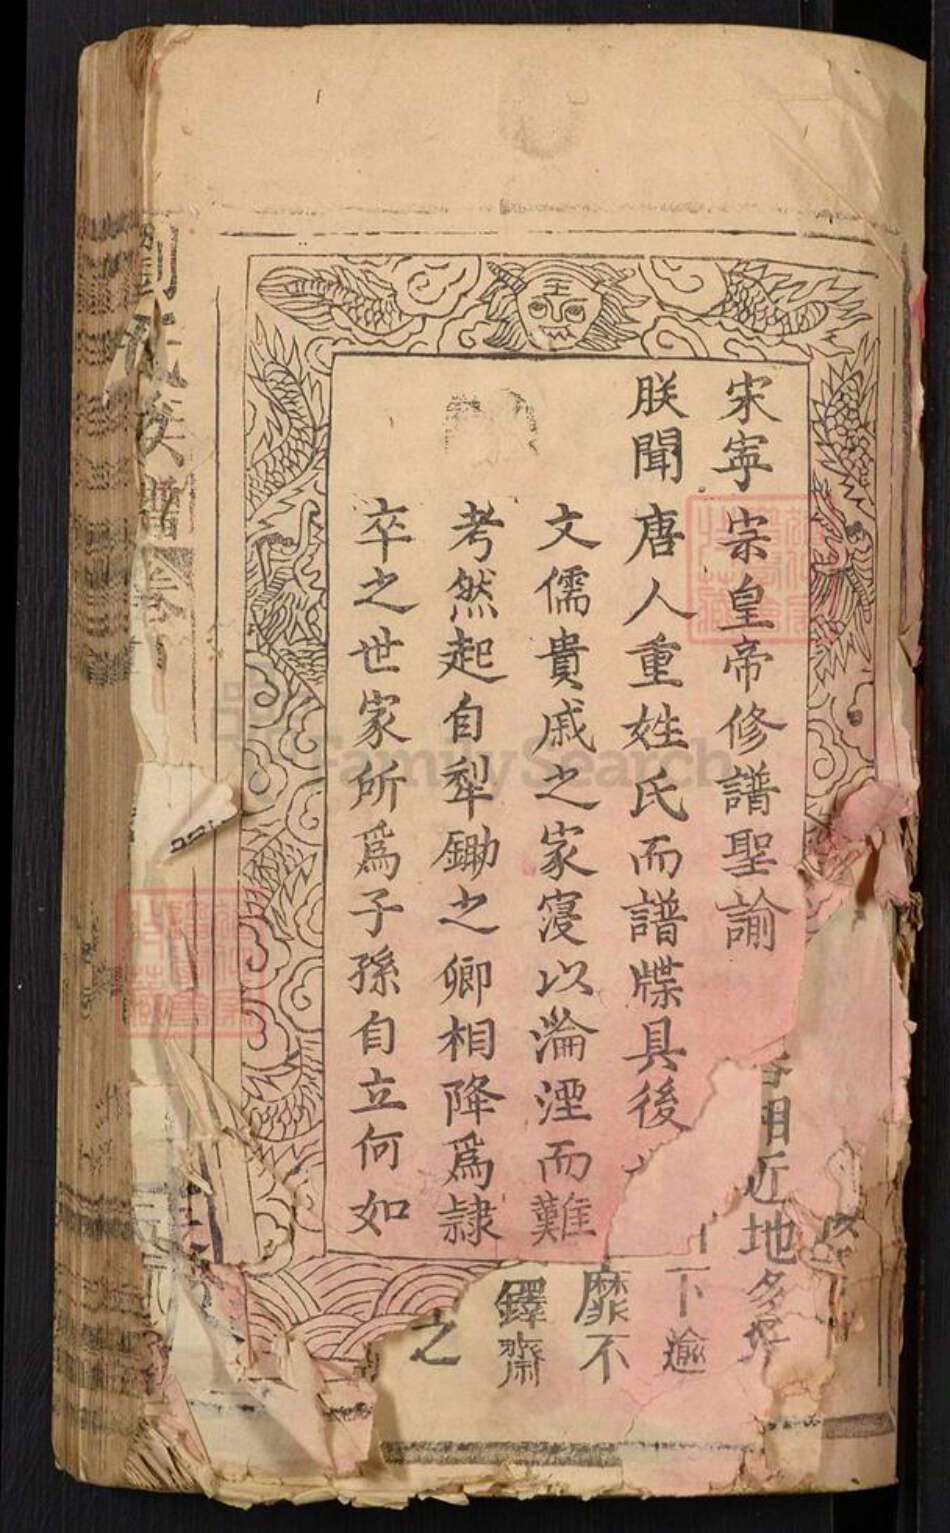 宋寧宗皇帝修譜聖諭
朕聞唐人重姓氏而譜牒具後
文儒貴戚之家寖以淪湮而難
考然起自犁鋤之卿相降為隷
卒之世家所爲子孫自立何如
相近地多
下逾
靡不
鐸齋
之
劉氏族譜卷
FamilySearch